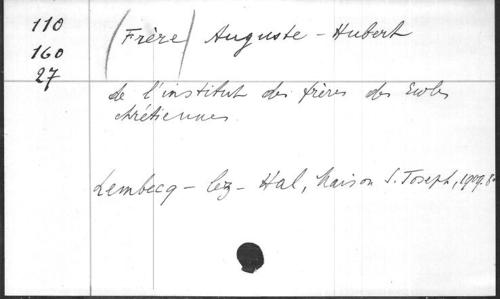 110
160
27
(Frère) Auguste-Hubert
de l'institut des frères des Ecoles
chrétiennes
Lembecq-lez-Hal, Maison S. Joseph, 1909. 8°